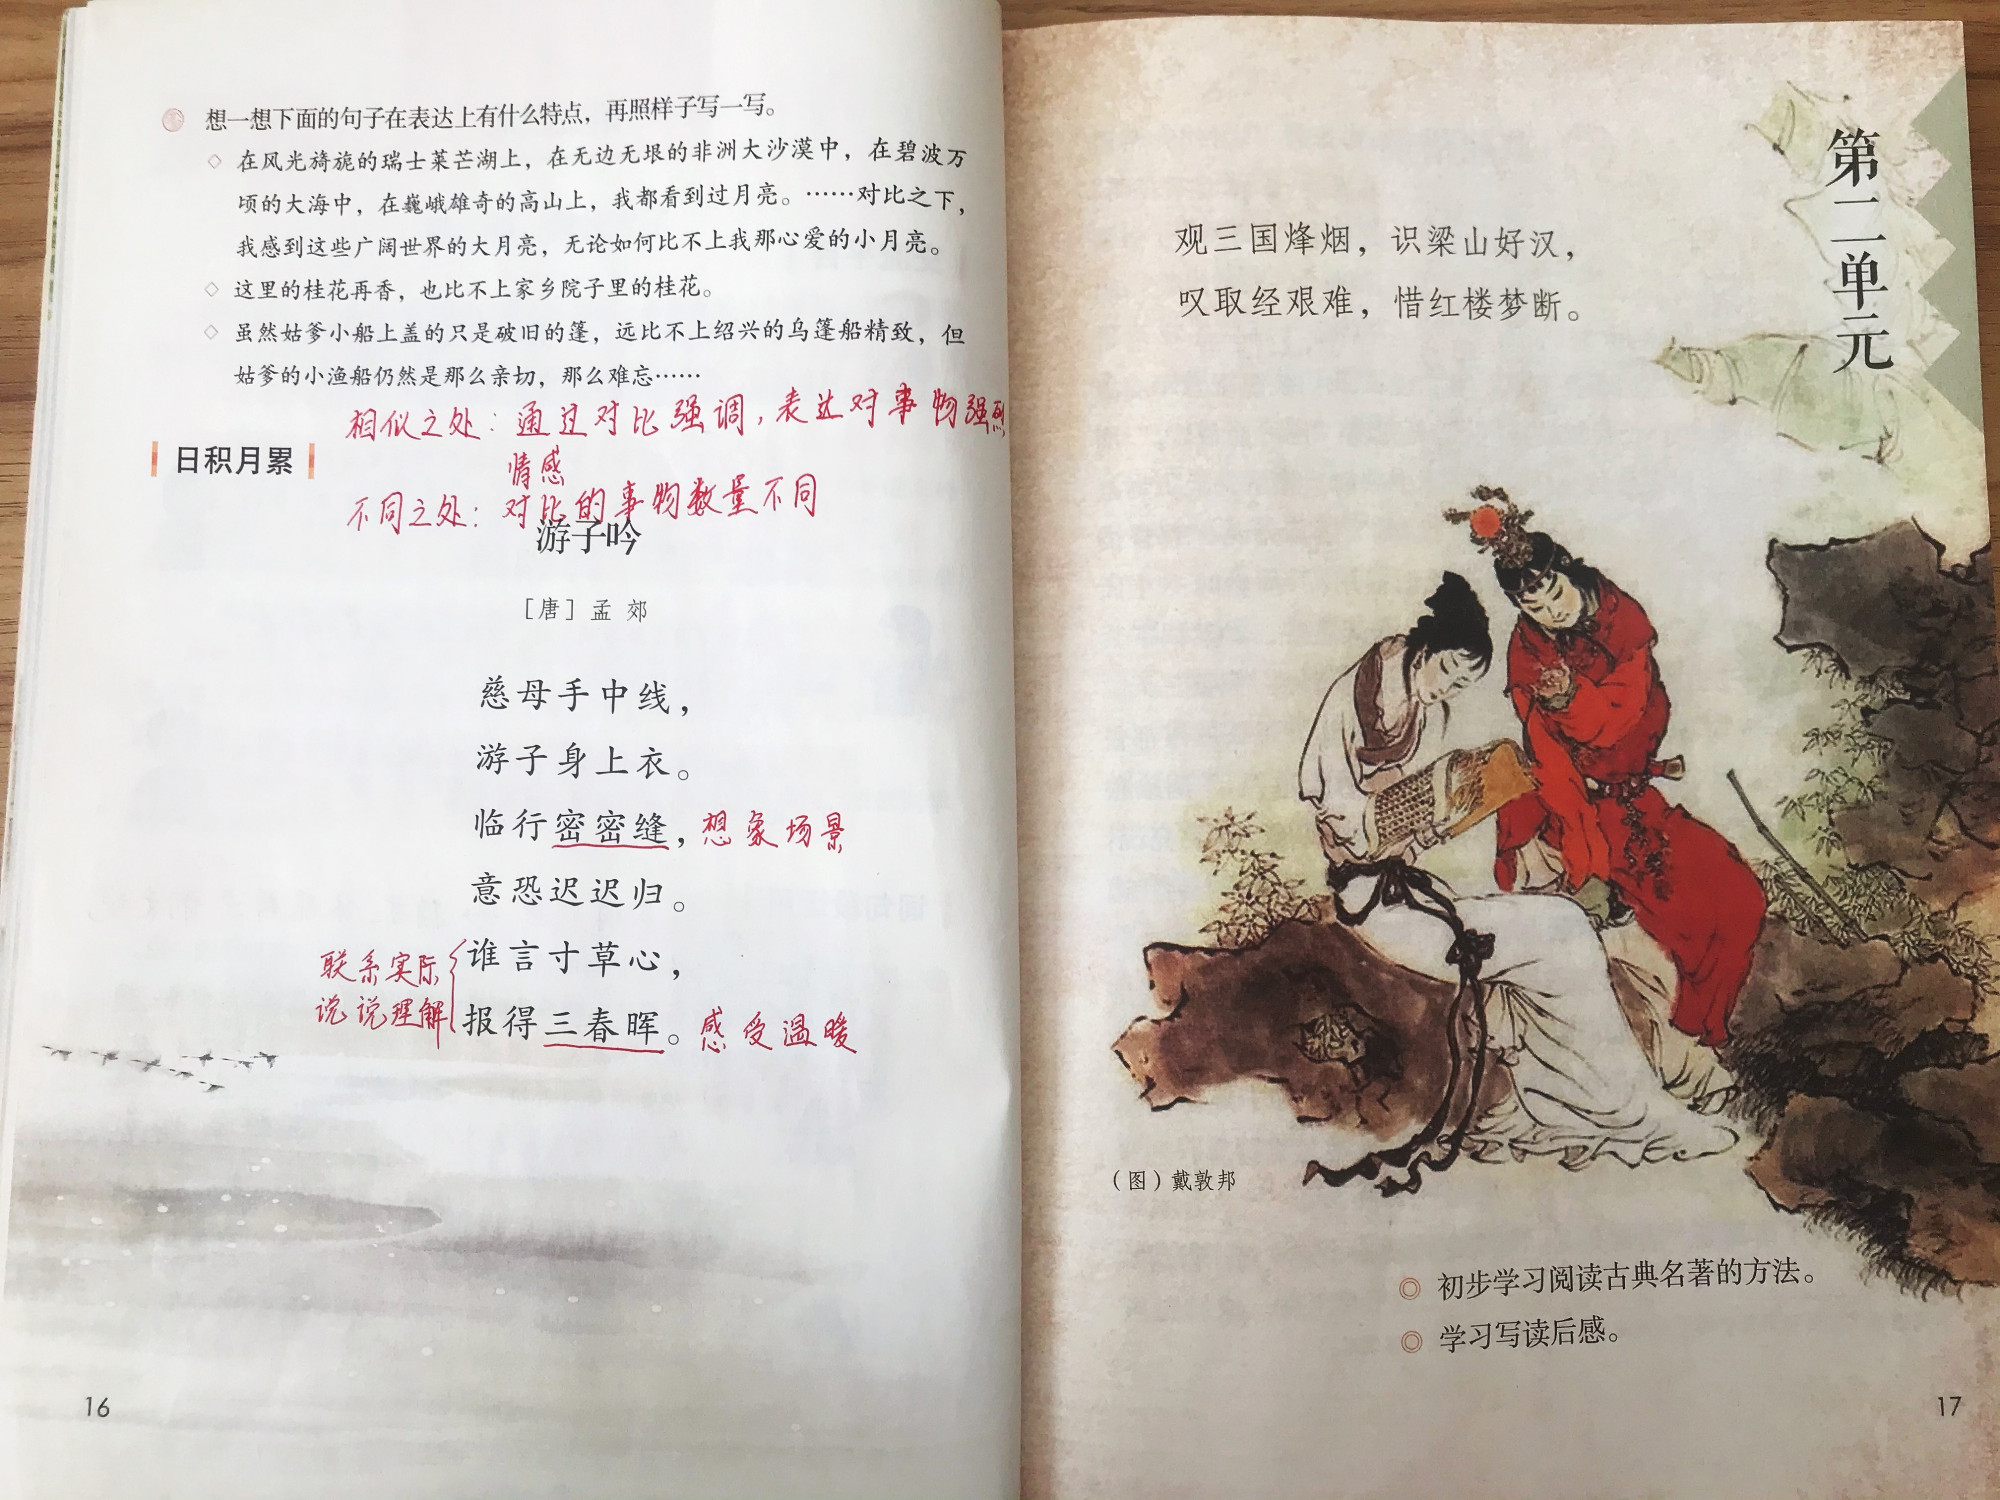 想一想下面的句子在表达上有什么特点，再照样子写一写。
◇ 在风光旖旎的瑞士莱芒湖上，在无边无垠的非洲大沙漠中，在碧波万
顷的大海中，在巍峨雄奇的高山上，我都看到过月亮。……对比之下，
我感到这些广阔世界的大月亮，无论如何比不上我那心爱的小月亮。
◇ 这里的桂花再香，也比不上家乡院子里的桂花。
◇ 虽然姑爹小船上盖的只是破旧的篷，远比不上绍兴的乌篷船精致，但
姑爹的小渔船仍然是那么亲切，那么难忘……
相似之处：通过对比强调，表达对事物强烈
情感
日积月累
不同之处：对比的事物数量不同
游子吟
［唐］孟 郊
慈母手中线，
游子身上衣。
临行密密缝，想象场景
意恐迟迟归。
谁言寸草心，
报得三春晖。感受温暖
联系实际
说说理解
16
第二单元
观三国烽烟，识梁山好汉，
叹取经艰难，惜红楼梦断。
（图）戴敦邦
◎ 初步学习阅读古典名著的方法。
◎ 学习写读后感。
17